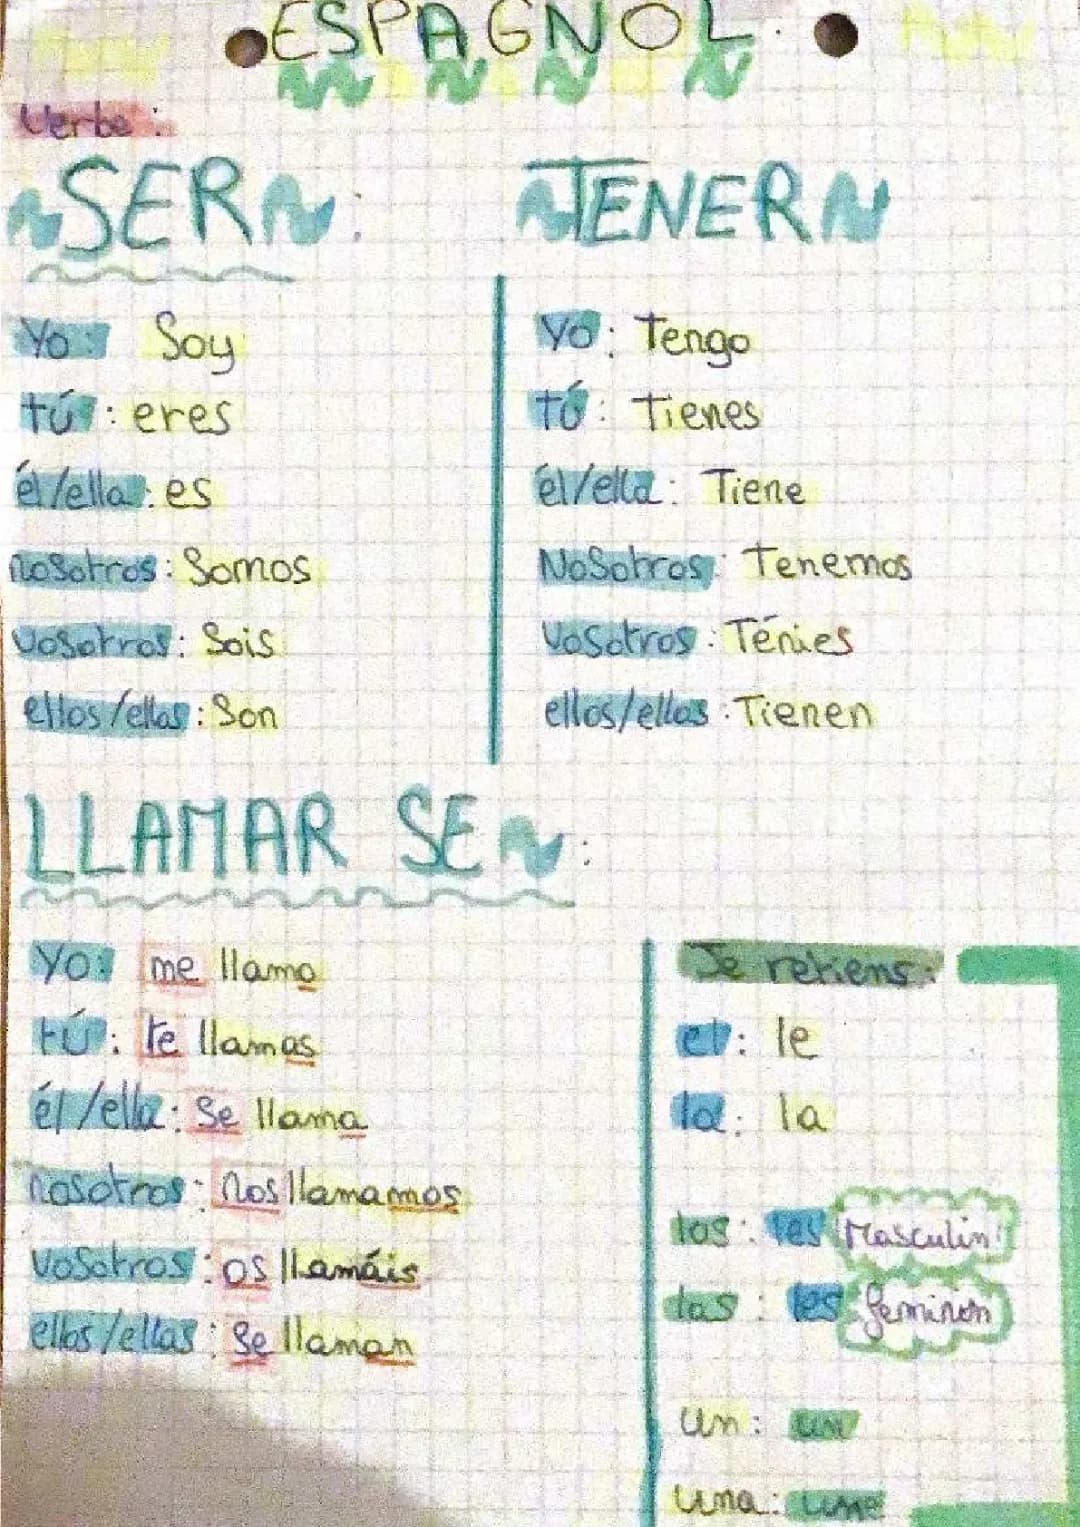 ESPAGNOL.
Verbe:
SER:
Yo: Soy
tú: eres
él/ella: es
nosotros: Somos
vosotros: Sois
ellos/ellas: Son
TENER
Yo: Tengo
tú: Tienes
él/ella: Tiene
NoSotros: Tenemos
VoSotros: Ténies
ellos/ellas: Tienen
LLAMAR SE:
Yo: me llamo
tú: te llamas
él/ella: Se llama
nosotros: Nos llamamos
vosotros: os llamáis
ellos/ellas: Se llaman
Je retiens:
el: le
la: la
los: les Masculin
las: les feminin
un: un
una: une